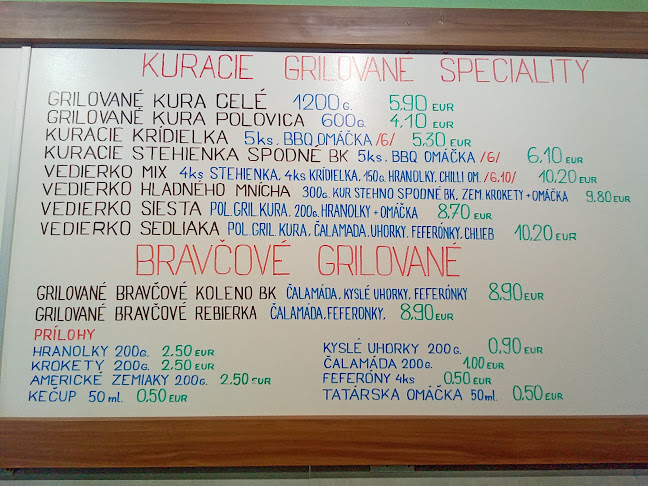 KURACIE GRILOVANÉ SPECIALITY
GRILOVANÉ KURA CELÉ 1200G. 5.90 EUR
GRILOVANÉ KURA POLOVICA 600G. 4.10 EUR
KURACIE KRÍDIELKA 5ks. BBQ OMÁČKA /6/ 5.30 EUR
KURACIE STEHIENKA SPODNÉ BK 5ks. BBQ OMÁČKA /6/ 6.10 EUR
VEDIERKO MIX 4ks STEHIENKA, 4ks KRÍDIELKA, 150g. HRANOLKY, CHILLI OM. /6.10/ 10,20 EUR
VEDIERKO HLADNÉHO MNÍCHA 300g. KUR. STEHNO SPODNÉ BK, ZEM. KROKETY + OMÁČKA 9.80 EUR
VEDIERKO SIESTA POL. GRIL. KURA, 200g. HRANOLKY + OMÁČKA 8,70 EUR
VEDIERKO SEDLIAKA POL. GRIL. KURA, ČALAMADA, UHORKY, FEFERÓNKY, CHLIEB 10,20 EUR
BRAVČOVÉ GRILOVANÉ
GRILOVANÉ BRAVČOVÉ KOLENO BK ČALAMÁDA, KYSLÉ UHORKY, FEFERÓNKY 8,90 EUR
GRILOVANÉ BRAVČOVÉ REBIERKA ČALAMÁDA, FEFERONKY, 8,90 EUR
PRÍLOHY
HRANOLKY 200G. 2.50 EUR
KROKETY 200G. 2.50 EUR
AMERICKÉ ZEMIAKY 200G. 2.50 EUR
KEČUP 50ml. 0,50 EUR
KYSLÉ UHORKY 200G. 0,90 EUR
ČALAMÁDA 200G. 1.00 EUR
FEFERÓNY 4ks 0,50 EUR
TATÁRSKA OMÁČKA 50ml. 0,50 EUR